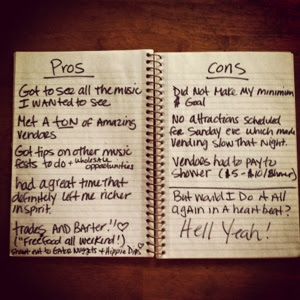 Pros
Got to see all the music
I wanted to see
Met a TON of Amazing
Vendors
Got tips on other music
fests to do + wholesale
opportunities
had a great time that
definitely left me richer
in spirit.
trades AND Barter!! ♡
("Free food all weekend!")
shout out to Gator Nuggets + Hippie Dips ♡
Cons
Did Not Make My minimum
$ Goal
No attractions scheduled
for Sunday eve which made
vending slow that Night.
Vendors had to pay to
Shower ($5 - $10/Shower)
But Would I Do it All
again in a heart beat?
Hell Yeah!